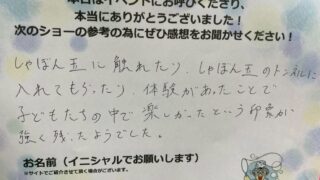 本日はイベントにお呼びくださり、
本当にありがとうございました！
次のショーの参考の為にぜひ感想をお聞かせください！
しゃぼん玉に触れたり、しゃぼん玉のトンネルに
入れてもらったり、体験があったことで
子どもたちの中で楽しかったという印象が
強く残ったようでした。
お名前（イニシャルでお願いします）
※サイトでご紹介させて頂く場合がございます。